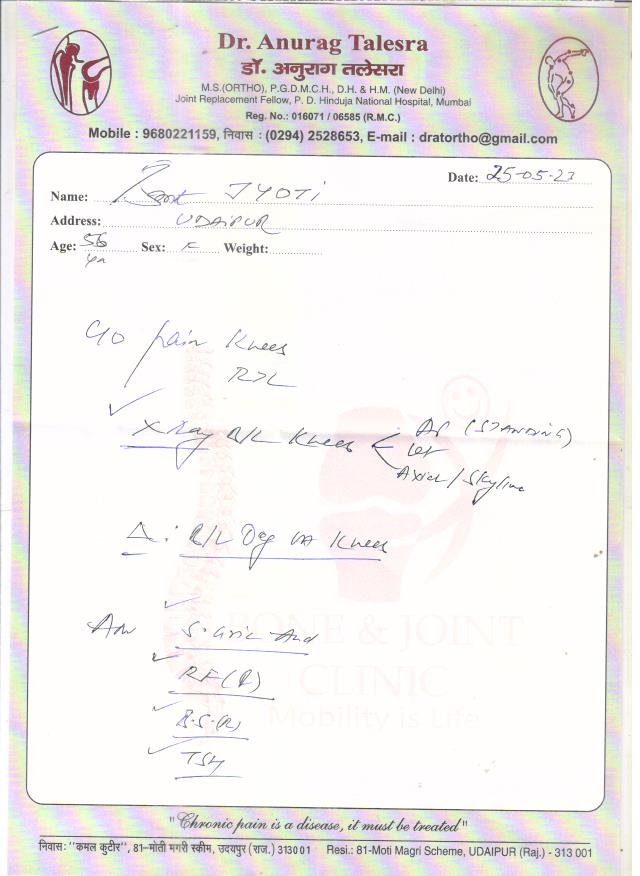 Dr. Anurag Talesra
डॉ. अनुराग तलेसरा
M.S.(ORTHO), P.G.D.M.C.H., D.H. & H.M. (New Delhi)
Joint Replacement Fellow, P. D. Hinduja National Hospital, Mumbai
Reg. No.: 016071 / 06585 (R.M.C.)
Mobile : 9680221159, निवास : (0294) 2528653, E-mail : dratortho@gmail.com
Date: 25-05-23
Name: JYOTI
Address: UDAIPUR
Age: 56 Sex: F Weight:
yr
C/O pain Knees
R>L
X-Ray B/L Knees < AP (STANDING)
Lat
Axial / Skyline
Δ: B/L Deg OA Knees
Adv S. Uric Acid
RF (Q)
B.S. (R)
TSH
BONE & JOINT
CLINIC
Mobility is Life
"Chronic pain is a disease, it must be treated"
निवास: "कमल कुटीर", 81-मोती मगरी स्कीम, उदयपुर (राज.) 313001 Resi.: 81-Moti Magri Scheme, UDAIPUR (Raj.) - 313 001